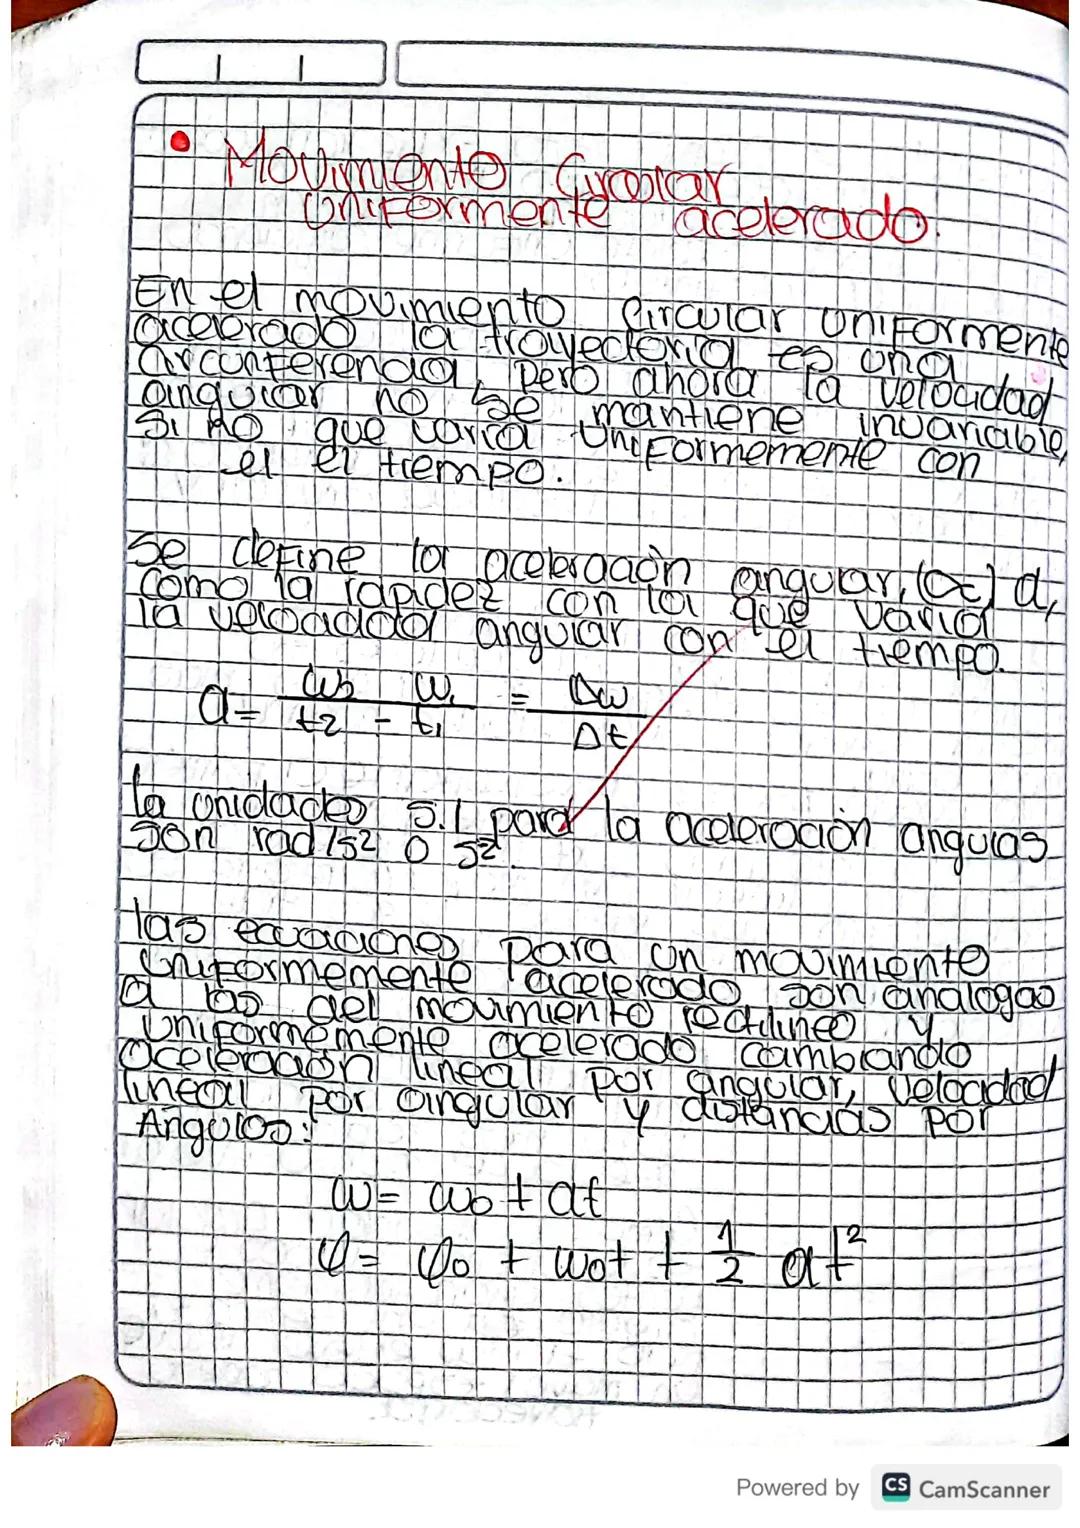 • Movimiento Circular
Uniformente acelerado.
En el movimiento Circular uniformente
acelerado la trayectoria es una
circunferencia, pero ahora la velocidad
angular no se mantiene invariable,
si no que varia uniformemente con
el el tiempo.
Se define la aceleración angular, (α) α,
como la rapidez con la que varia
la velocidad angular con el tiempo.
α = ω2 - ω1 / t2 - t1 = Δω / Δt
La unidades S.I para la aceleración angulas
son rad/s² o s².
las ecuaciones para un movimiento
uniformemente acelerado son analogas
a las del movimiento rectilineo y
uniformemente acelerado cambiando
aceleración lineal por angular, velocidad
lineal por angular y distancias por
Angulos:
ω = ω0 + αt
φ = φ0 + ω0t + 1/2 αt²
Powered by CS CamScanner